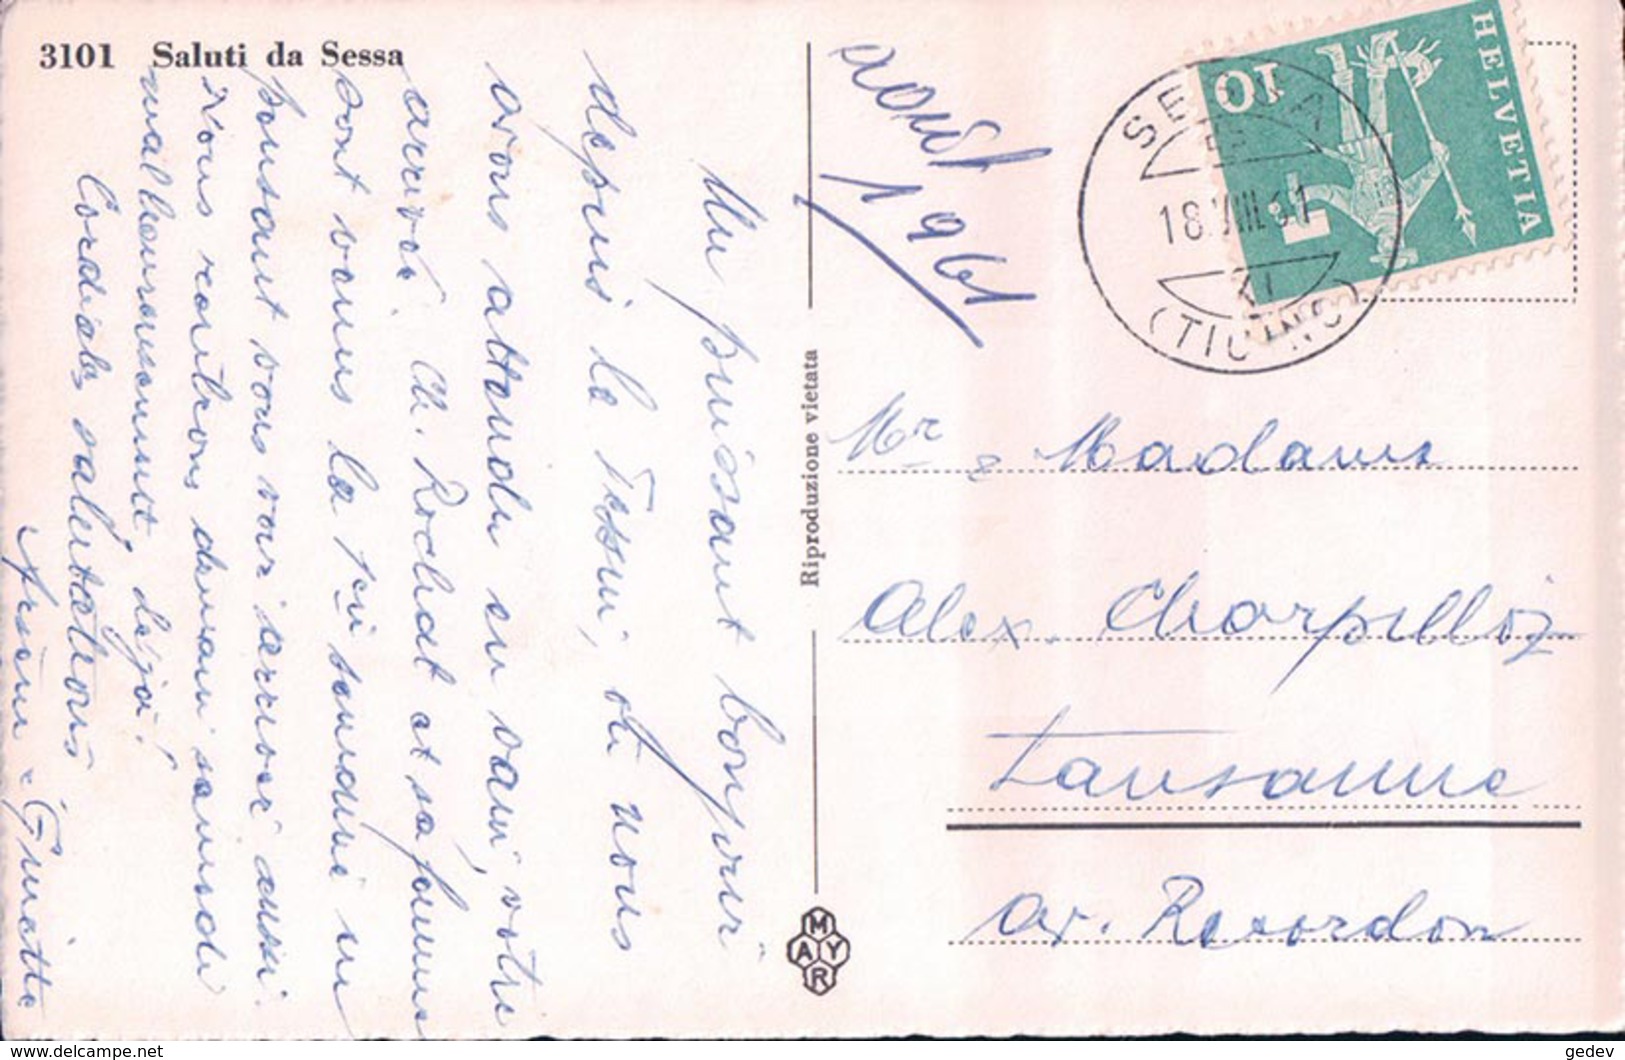 3101 Saluti da Sessa
août
1961
HELVETIA
10
SESSA
18.VIII.61
(TICINO)
Un puissant bonjour
depuis le Tessin, où nous
avons attendu en vain, votre
arrivée. Ch. Rochat et sa femme
sont venus la 1ère semaine en
pensant vous voir arriver aussi.
Nous rentrons demain samedi
malheureusement, déjà!
Cordiales salutations
Riproduzione vietata
MAYR
Mr & Madame
Alex. Charpilloz
Lausanne
av. Recordon
www.delcampe.net
gedev